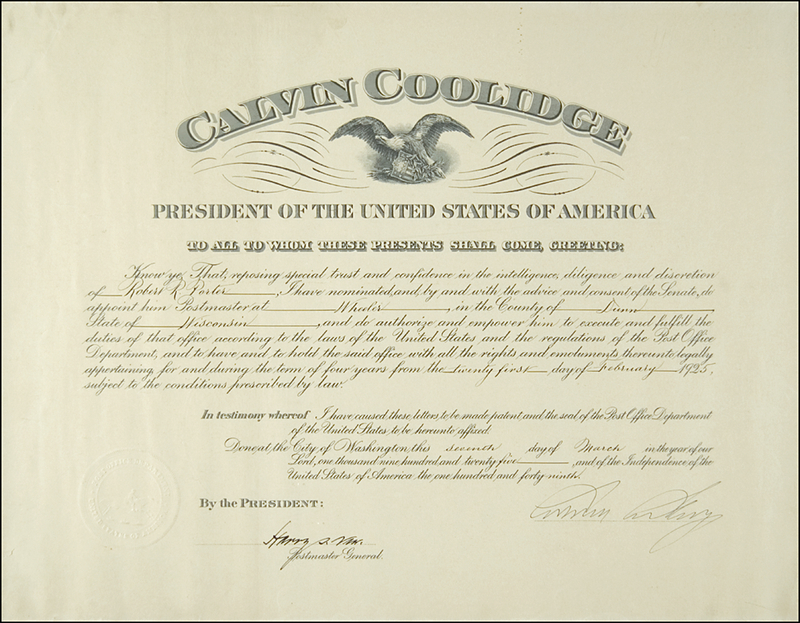 CALVIN COOLIDGE
PRESIDENT OF THE UNITED STATES OF AMERICA
TO ALL TO WHOM THESE PRESENTS SHALL COME, GREETING:
Know ye, That, reposing special trust and confidence in the intelligence, diligence and discretion
of Robert R. Porter, I have nominated, and, by and with the advice and consent of the Senate, do
appoint him Postmaster at Wheeler, in the County of Dunn
State of Wisconsin, and do authorize and empower him to execute and fulfill the
duties of that office according to the laws of the United States and the regulations of the Post Office
Department, and to have and to hold the said office with all the rights and emoluments thereunto legally
appertaining, for and during the term of four years from the twenty first day of February 1925,
subject to the conditions prescribed by law.
In testimony whereof I have caused these letters to be made patent, and the seal of the Post Office Department
of the United States, to be hereunto affixed.
Done at the City of Washington this seventh day of March in the year of our
Lord, one thousand nine hundred and twenty five, and of the Independence of the
United States of America the one hundred and forty-ninth.
By the PRESIDENT:
Harry S. New
Postmaster General.